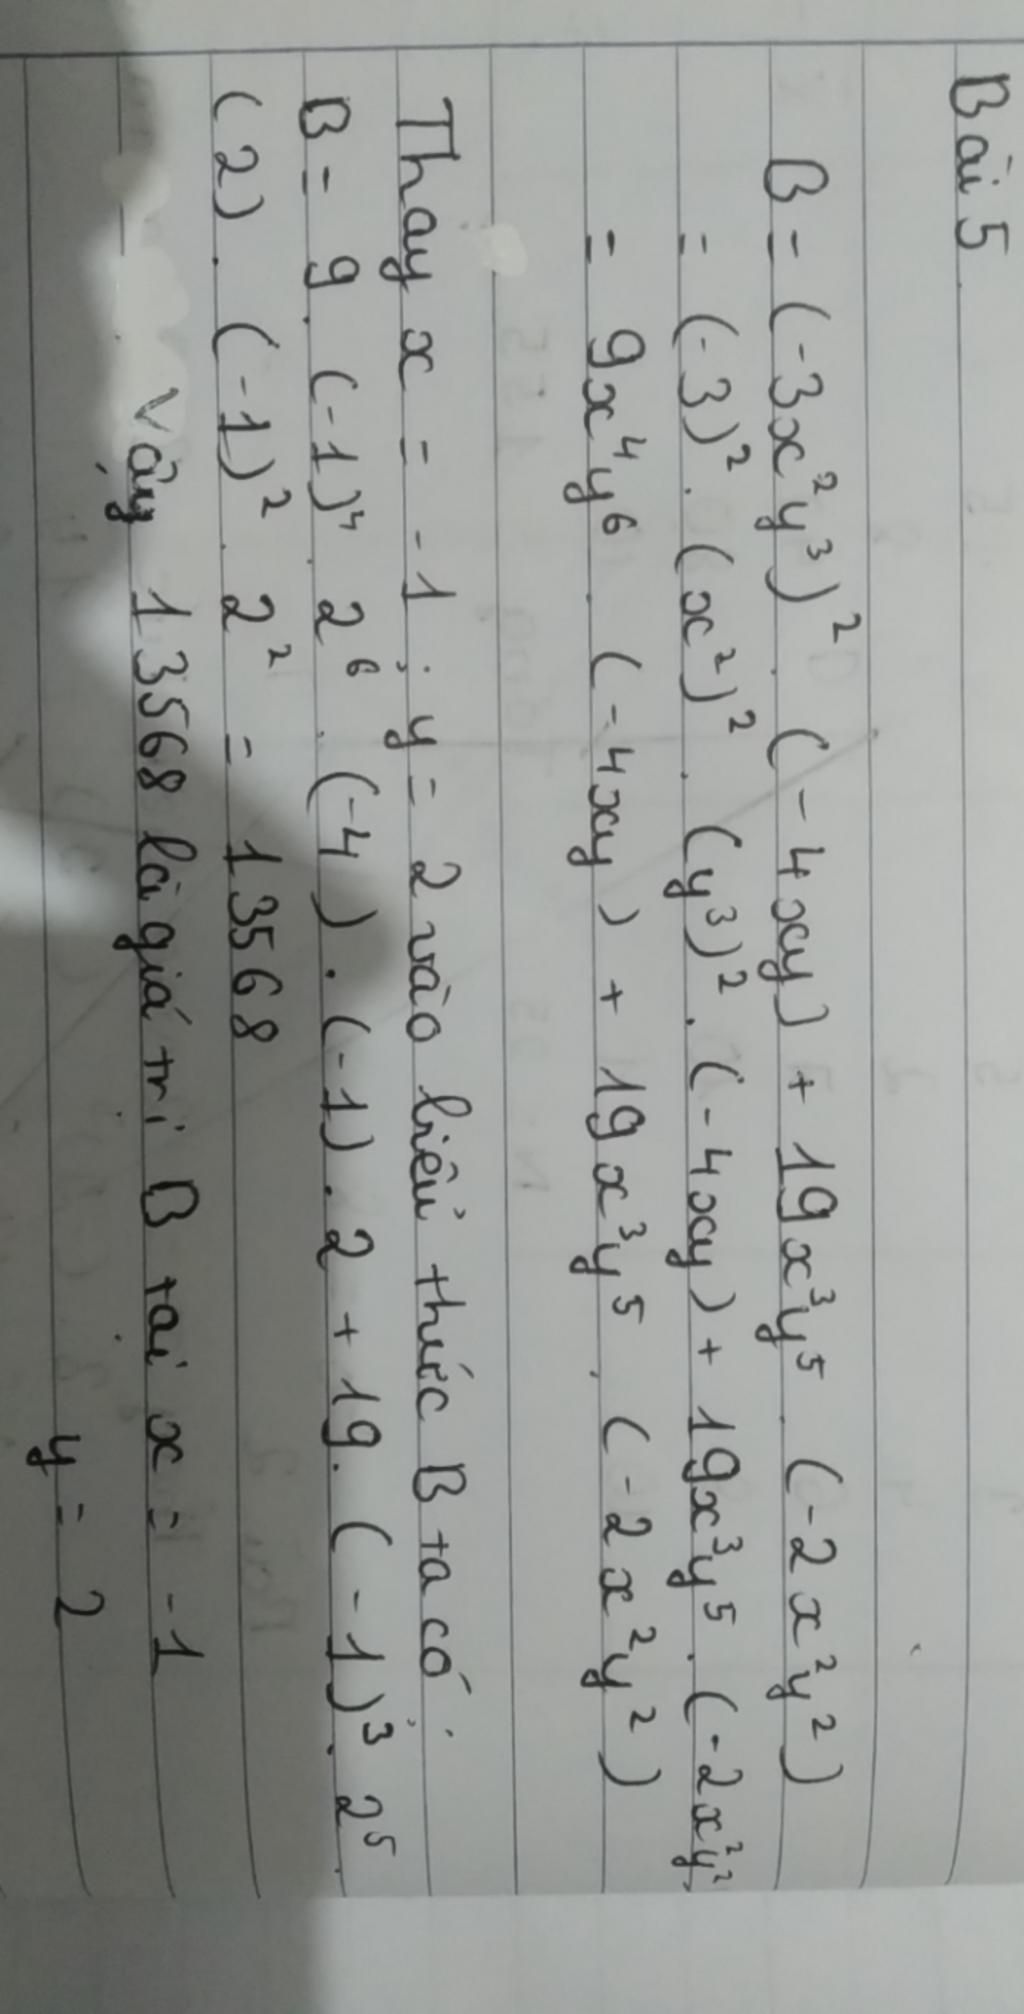 Bài 5
B = (-3x²y³)² . (-4xy) + 19x³y⁵ . (-2x²y²)
= (-3)² . (x²)² . (y³)² . (-4xy) + 19x³y⁵ . (-2x²y²
= 9x⁴y⁶ . (-4xy) + 19x³y⁵ . (-2x²y²)
Thay x = -1 ; y = 2 vào biểu thức B ta có :
B = 9 . (-1)⁴ . 2⁶ . (-4) . (-1) . 2 + 19 . (-1)³ . 2⁵ .
(2) . (-1)² . 2² = 13568
Vậy 13568 là giá trị B tại x = -1
y = 2